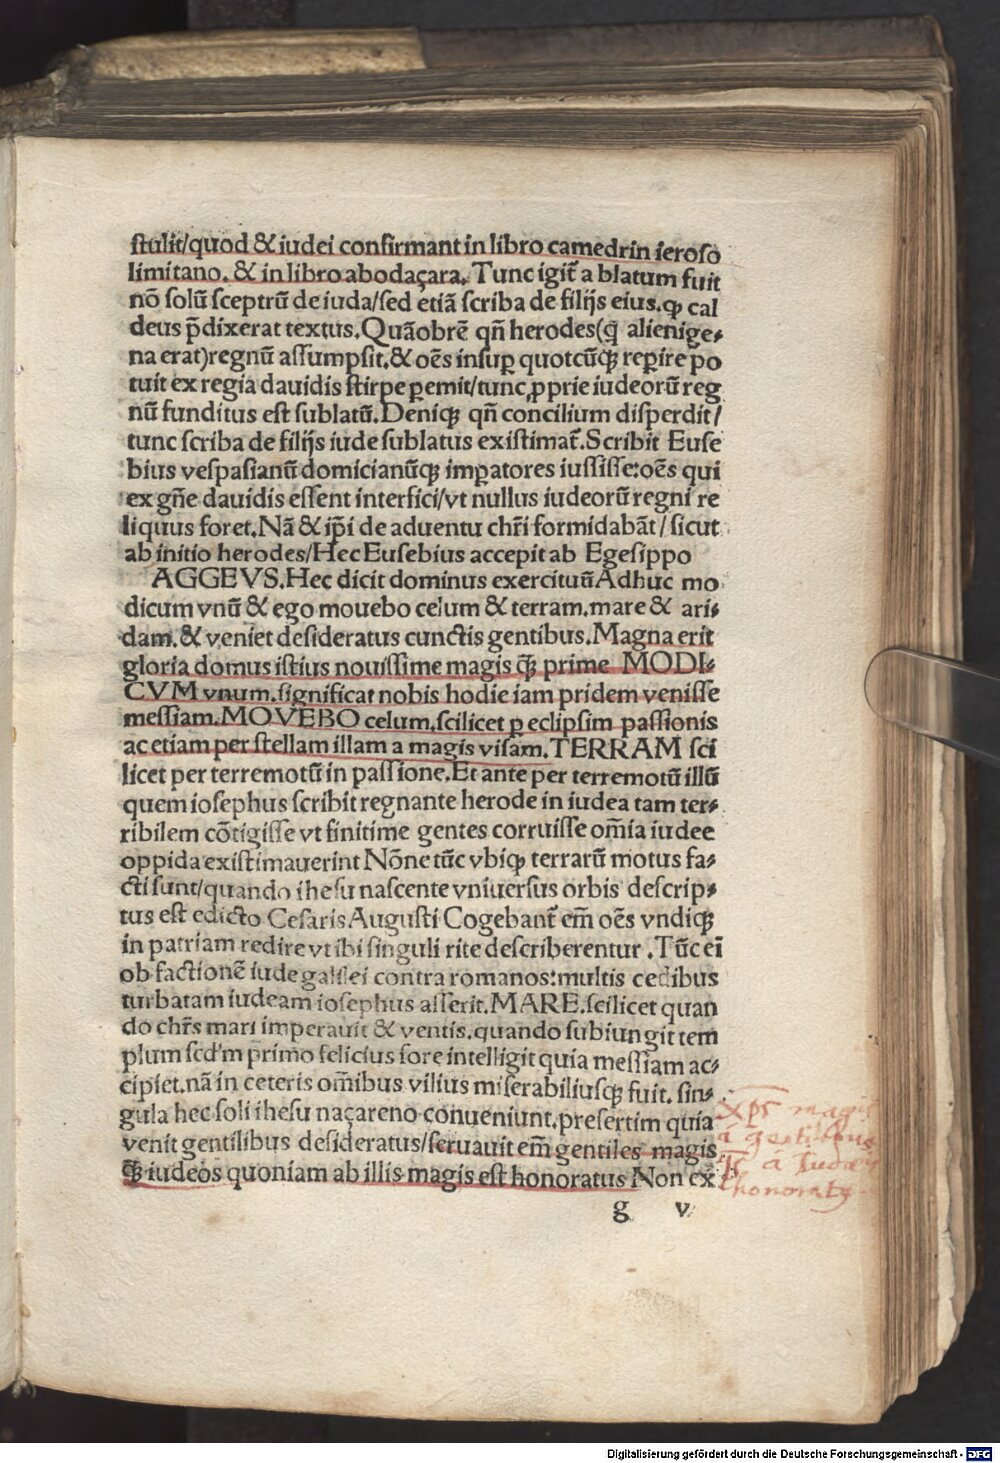 stulit/quod & iudei confirmant in libro camedrin ieroso
limitano. & in libro abodaçara. Tunc igit̃ a blatum fuit
nõ solũ sceptrũ de iuda/sed etiã scriba de filijs eius.ꝙ cal
deus p̃dixerat textus.Quãobrẽ qñ herodes(q̃ alienige⸗
na erat)regnũ assumpsit.& oẽs insuꝑ quotcũqꝫ reꝑire po
tuit ex regia dauidis stirpe ꝑemit/tunc ꝓprie iudeorũ reg
nũ funditus est sublatũ.Deniqꝫ qñ concilium disperdit/
tunc scriba de filijs iude sublatus existimat̃.Scribit Euse
bius vespasianũ domicianũqꝫ imꝑatores iussisse:oẽs qui
ex gñe dauidis essent interfici/vt nullus iudeorũ regni re
liquus foret.Nã & ip̃i de aduentu chr̃i formidabãt/sicut
ab initio herodes/Hec Eusebius accepit ab Egesippo
AGGEVS.Hec dicit dominus exercituũ Adhuc mo
dicum vnũ & ego mouebo celum & terram.mare & ari⸗
dam.& veniet desideratus cunctis gentibus.Magna erit
gloria domus istius nouissime magis q̃ꝫ prime MODI⸗
CVM vnum.significat nobis hodie iam pridem venisse
messiam.MOVEBO celum.scilicet ꝑ eclipsim passionis
ac etiam per stellam illam a magis visam.TERRAM sci
licet per terremotũ in passione.Et ante per terremotũ illũ
quem iosephus scribit regnante herode in iudea tam ter⸗
ribilem cõtigisse vt finitime gentes corruisse om̃ia iudee
oppida existimauerint Nõne tũc vbiqꝫ terrarũ motus fa⸗
cti sunt/quando ihesu nascente vniuersus orbis descrip⸗
tus est edicto Cesaris Augusti Cogebant̃ em̃ oẽs vndiqꝫ
in patriam redire vt ibi singuli rite describerentur .Tũc eĩ
ob factionẽ iude galilei contra romanos:multis cedibus
turbatam iudeam iosephus asserit.MARE.scilicet quan
do chr̃s mari imperauit & ventis.quando subiungit tem
plum scd'm primo felicius fore intelligit quia messiam ac⸗
cipiet.nã in ceteris om̃ibus vilius miserabiliusqꝫ fuit. sin⸗
gula hec soli ihesu naçareno conueniunt.presertim quia
venit gentilibus desideratus/seruauit em̃ gentiles magis
q̃ꝫ iudeos quoniam ab illis magis est honoratus Non ex
Xp̃s magis
á gentibus
á Iudæis
honoratꝰ
g v
Digitalisierung gefördert durch die Deutsche Forschungsgemeinschaft - DFG